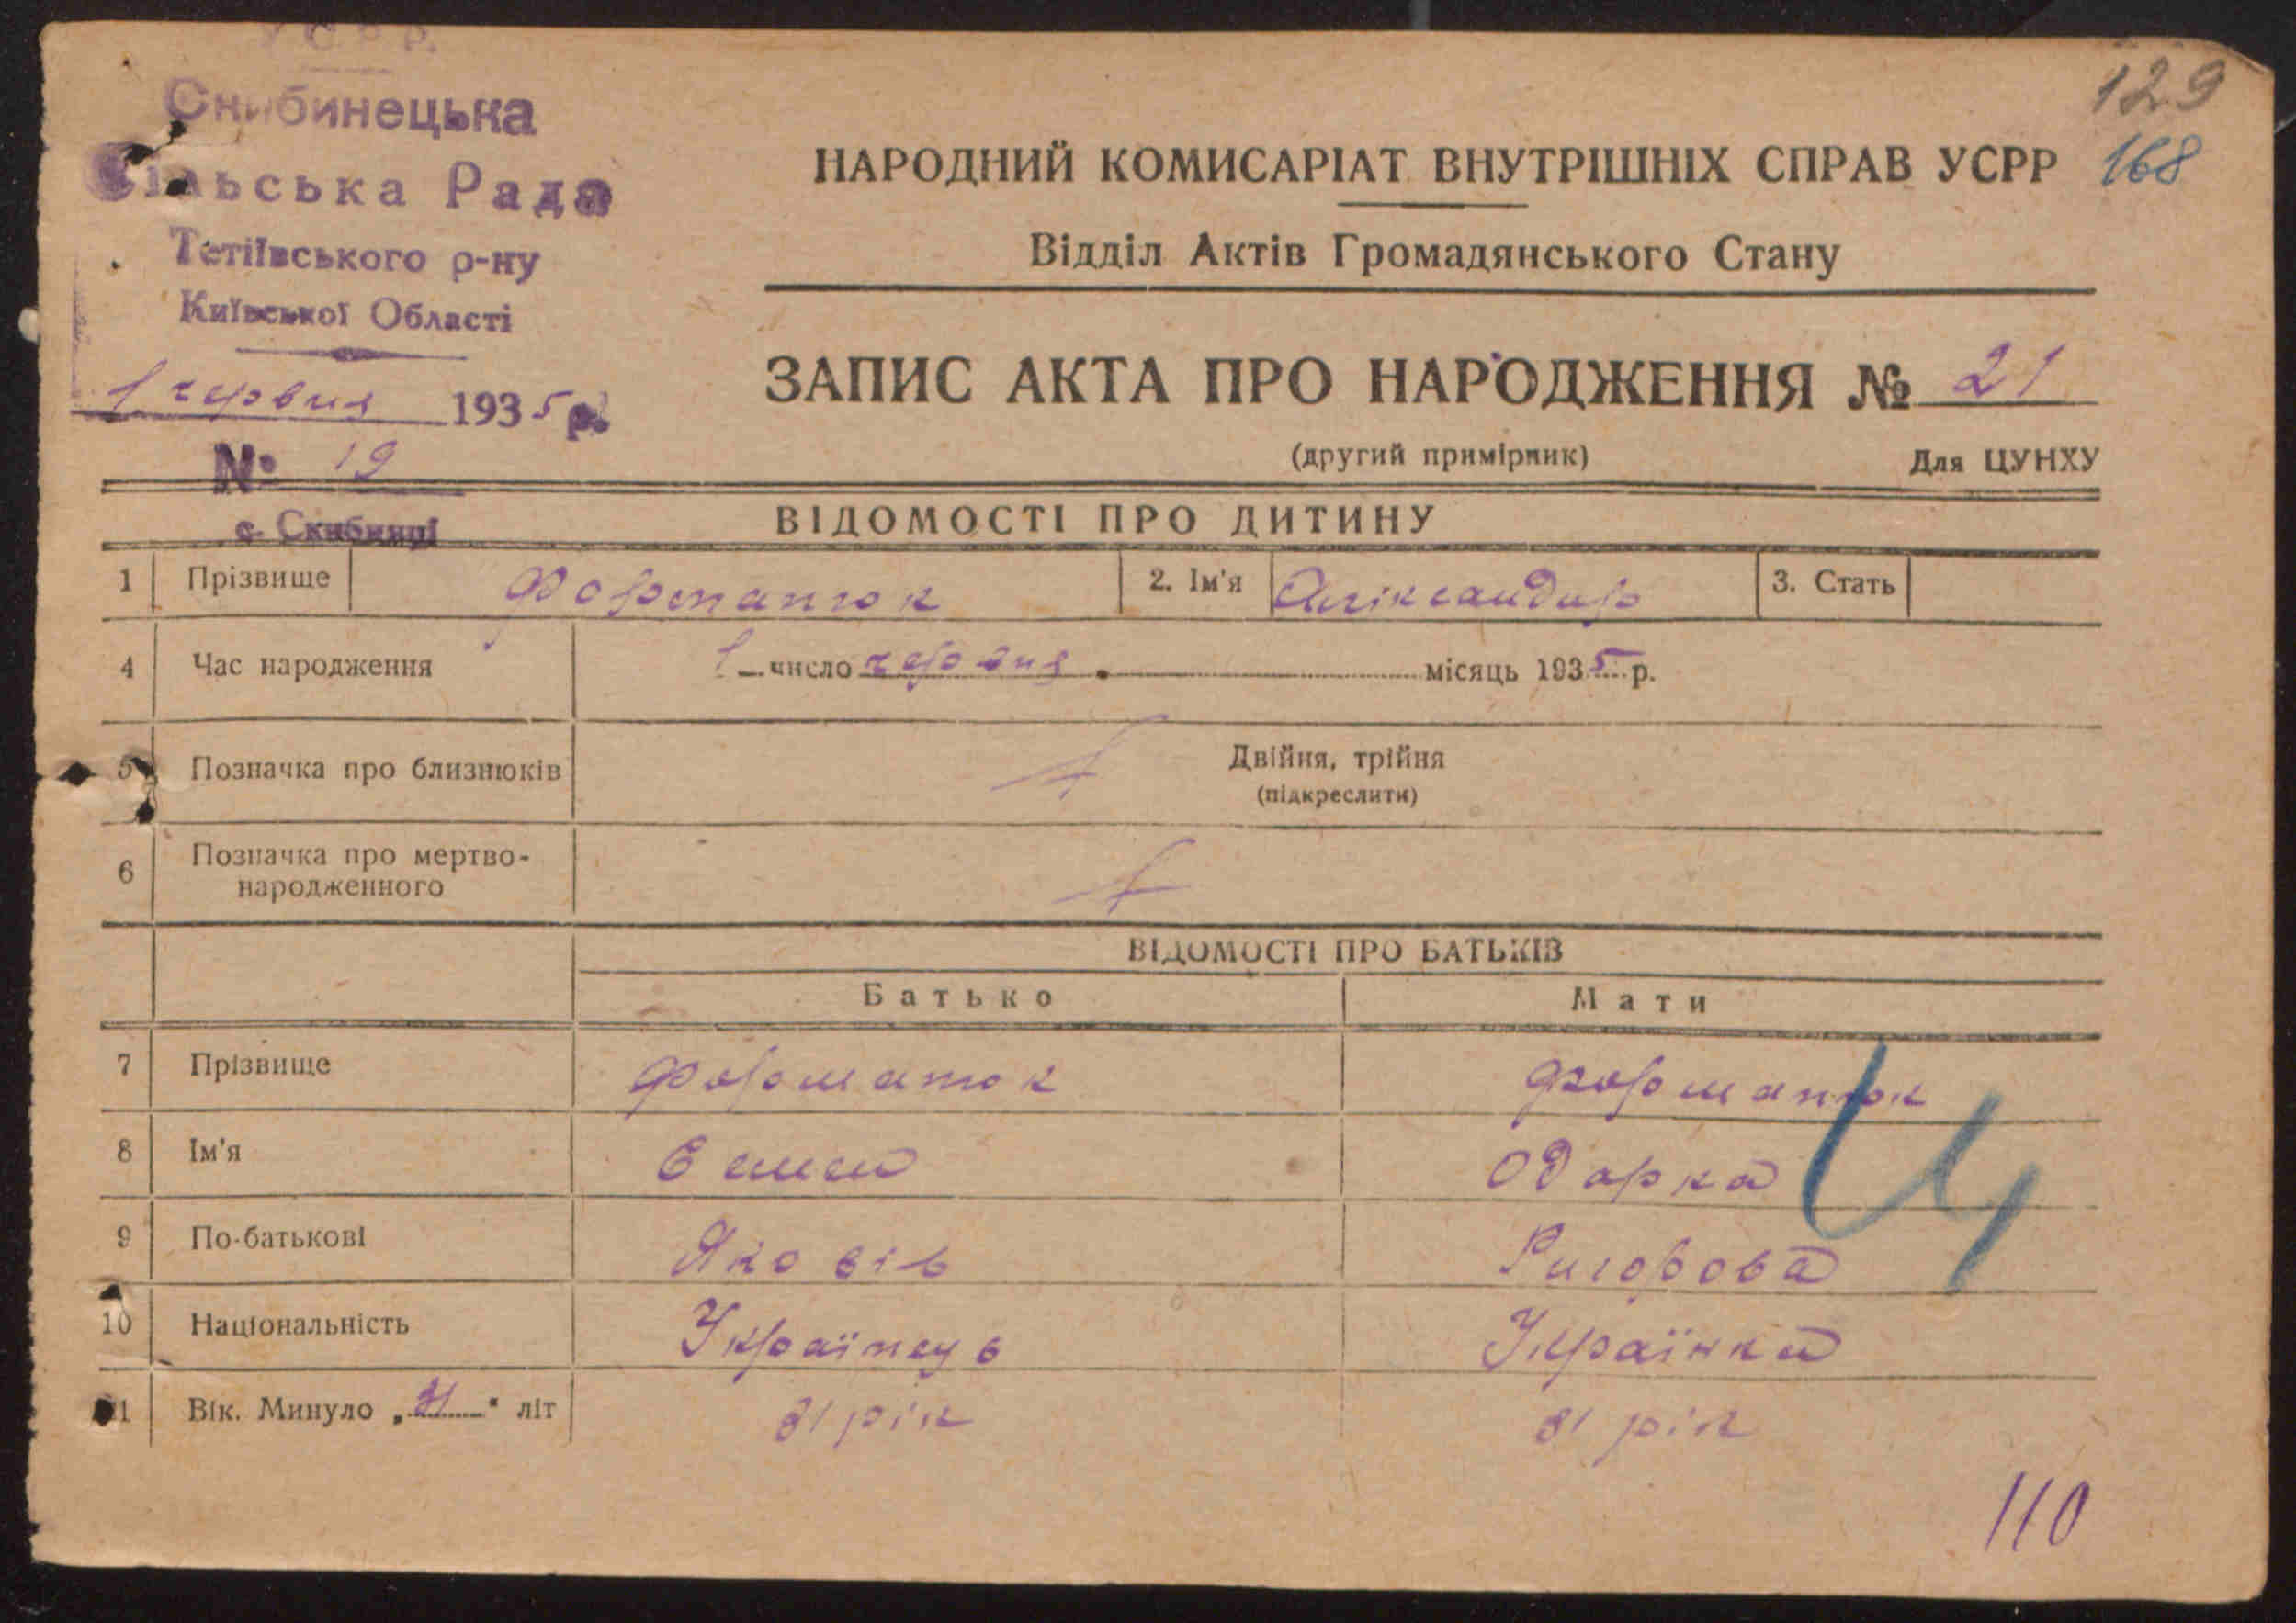 У С Р Р.
129
Скибинецька
168
Сільська Рада
Тетіївського р-ну
Київської Області
1 червня 1935 р.
№ 19
с. Скибинці
НАРОДНИЙ КОМИСАРІАТ ВНУТРІШНІХ СПРАВ УСРР
Відділ Актів Громадянського Стану
ЗАПИС АКТА ПРО НАРОДЖЕННЯ № 21
(другий примірник) Для ЦУНХУ
ВІДОМОСТІ ПРО ДИТИНУ
1 Прізвище Форманюк 2. Ім'я Аліксандир 3. Стать
4 Час народження 1 число червня місяць 1935 р.
5 Позначка про близнюків Двійня, трійня
(підкреслити)
6 Позначка про мертво-
народженного
ВІДОМОСТІ ПРО БАТЬКІВ
Батько Мати
7 Прізвище Форманюк Форманюк
8 Ім'я Одарка
9 По-батькові Яковів Ригорова
10 Національність Українець Українка
11 Вік. Минуло „ " літ 31 рік 31 рік
110